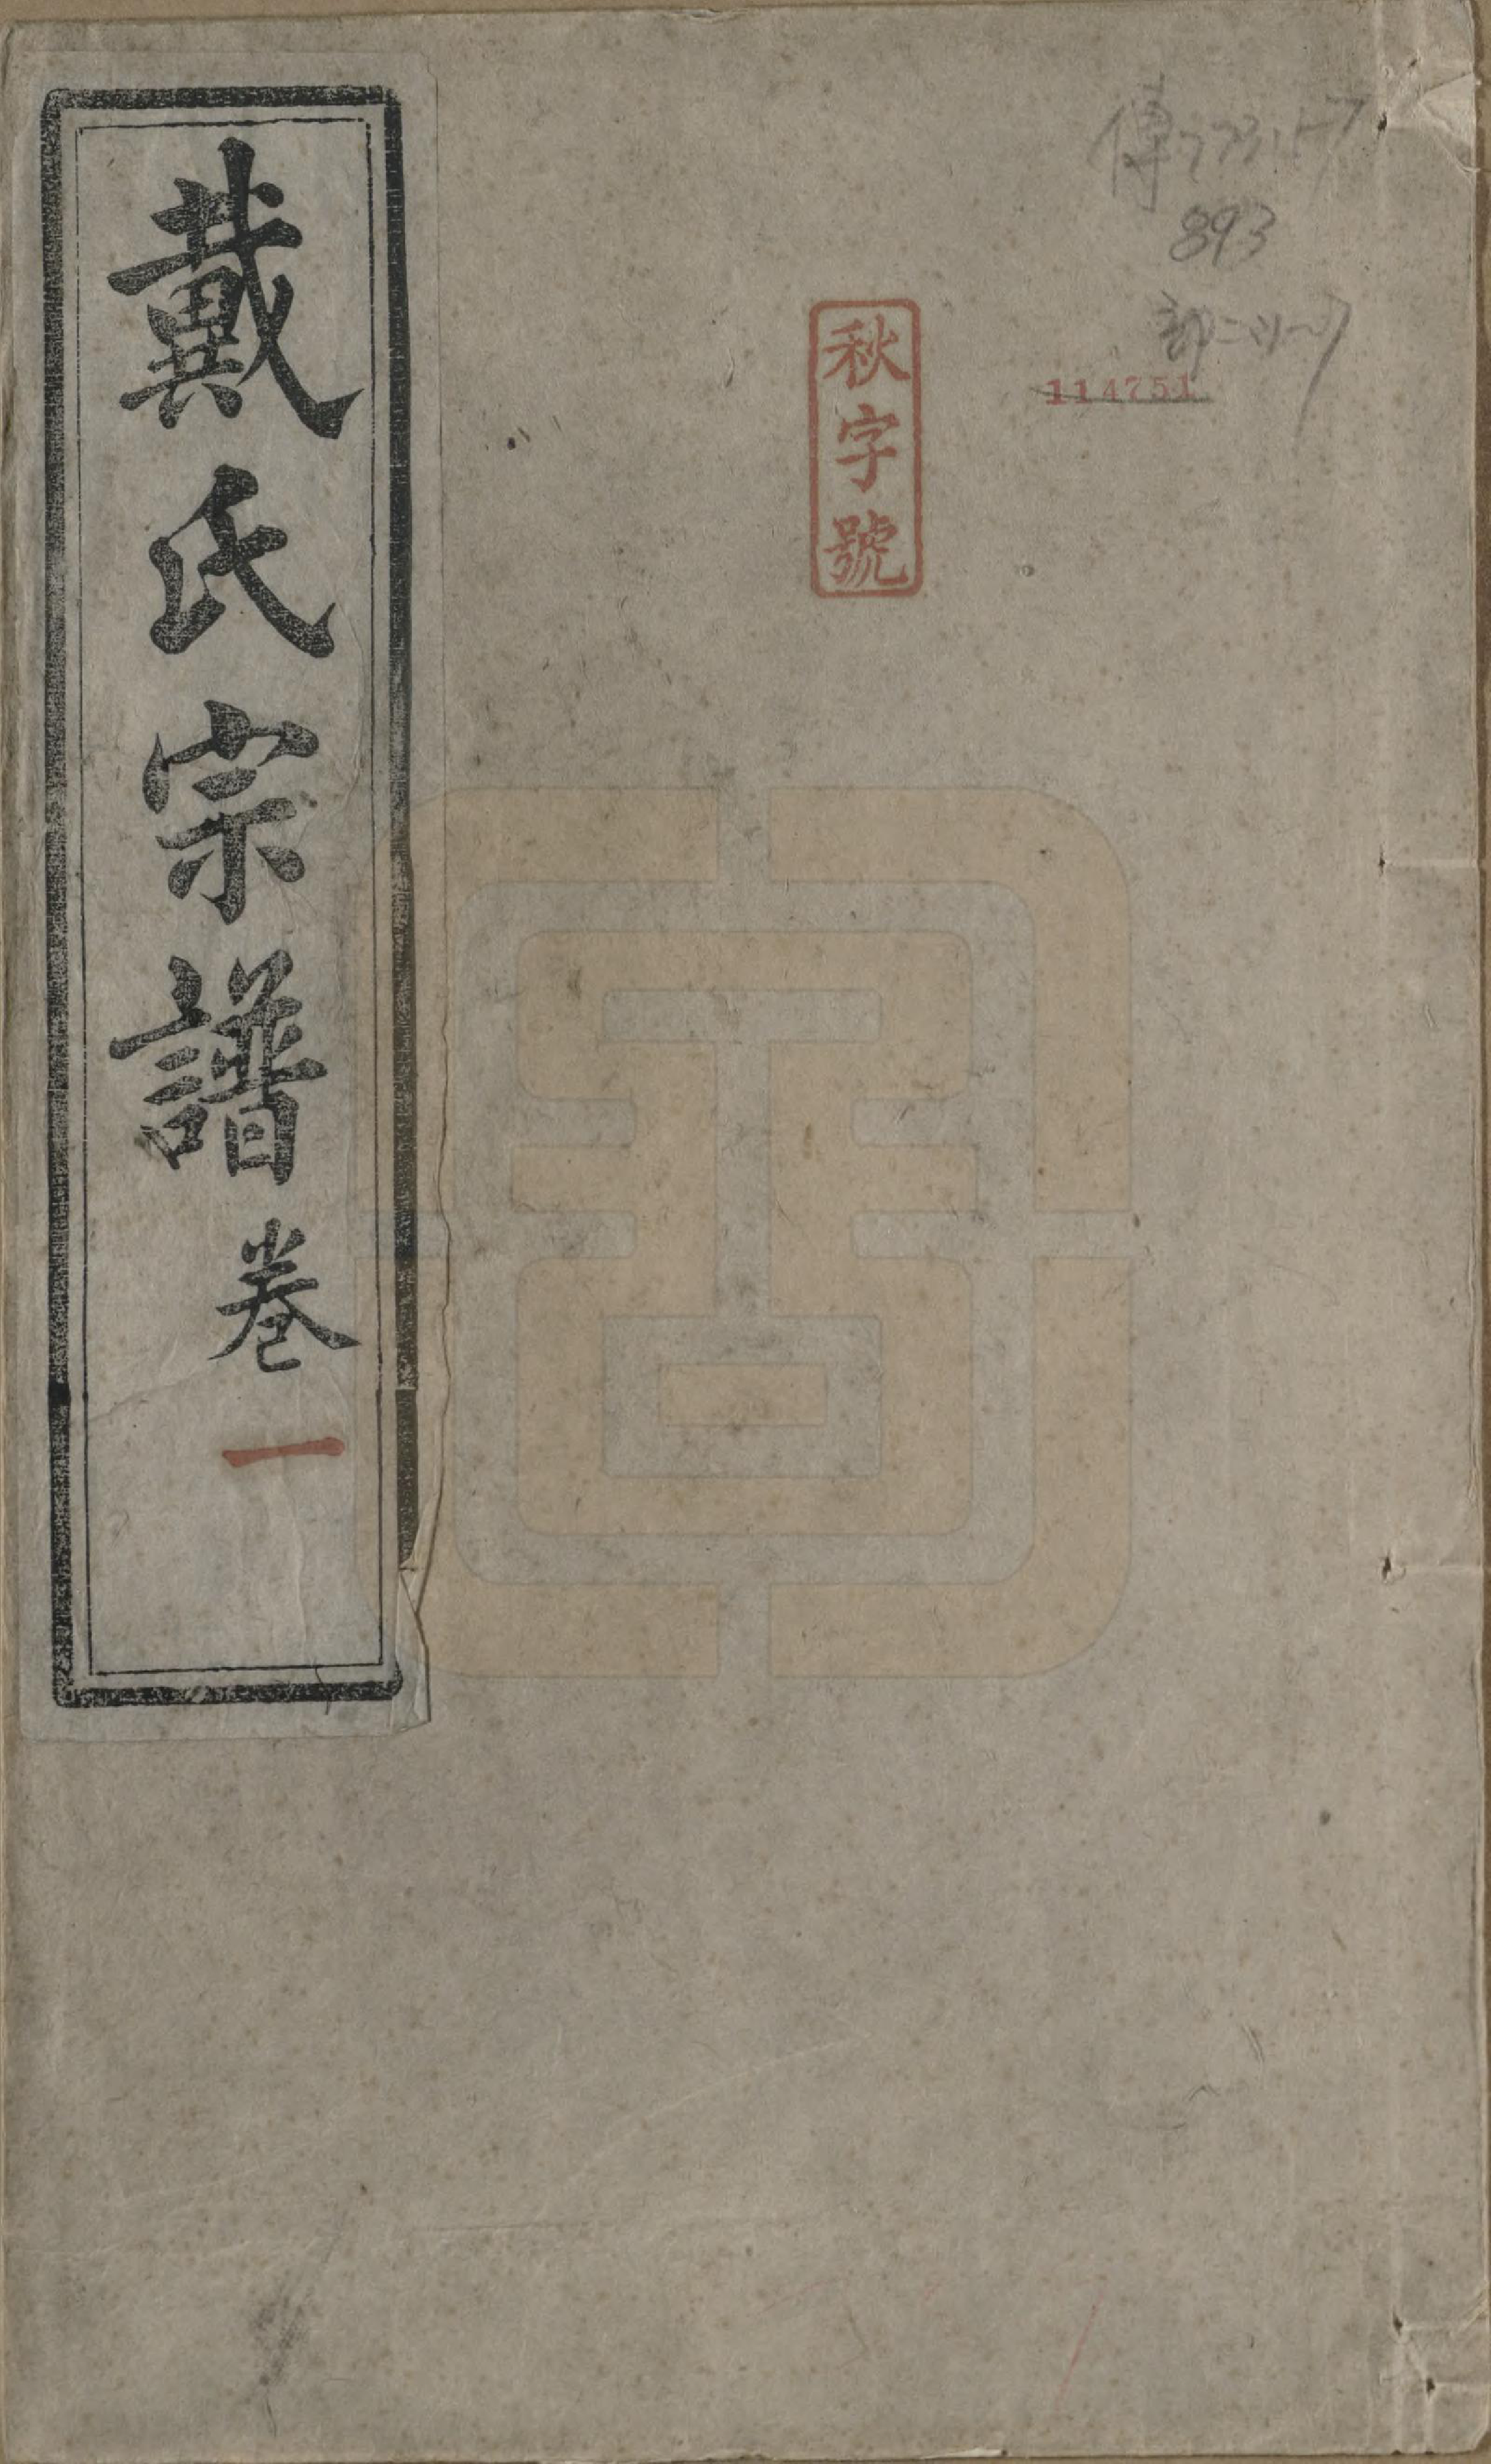 戴氏宗譜卷一
秋字號
893
114751